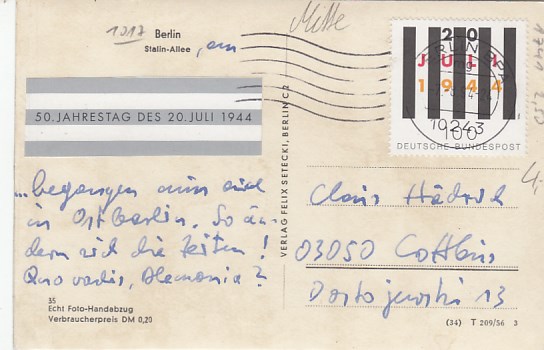 1017
Berlin
Stalin-Allee , am
50. JAHRESTAG DES 20. JULI 1944
...begangen nun auch
in Ostberlin. So än-
dern sich die Zeiten!
Quo vadis, Alemania?
35
Echt Foto-Handabzug
Verbraucherpreis DM 0,20
VERLAG FELIX SETECKI, BERLIN C 2
Mitte
20
JULI
1944
100
DEUTSCHE BUNDESPOST
BERLIN
10243
2,50
4,-
Claus
03050 Cottbus
Dostojewski 13
(34) T 209/56 3